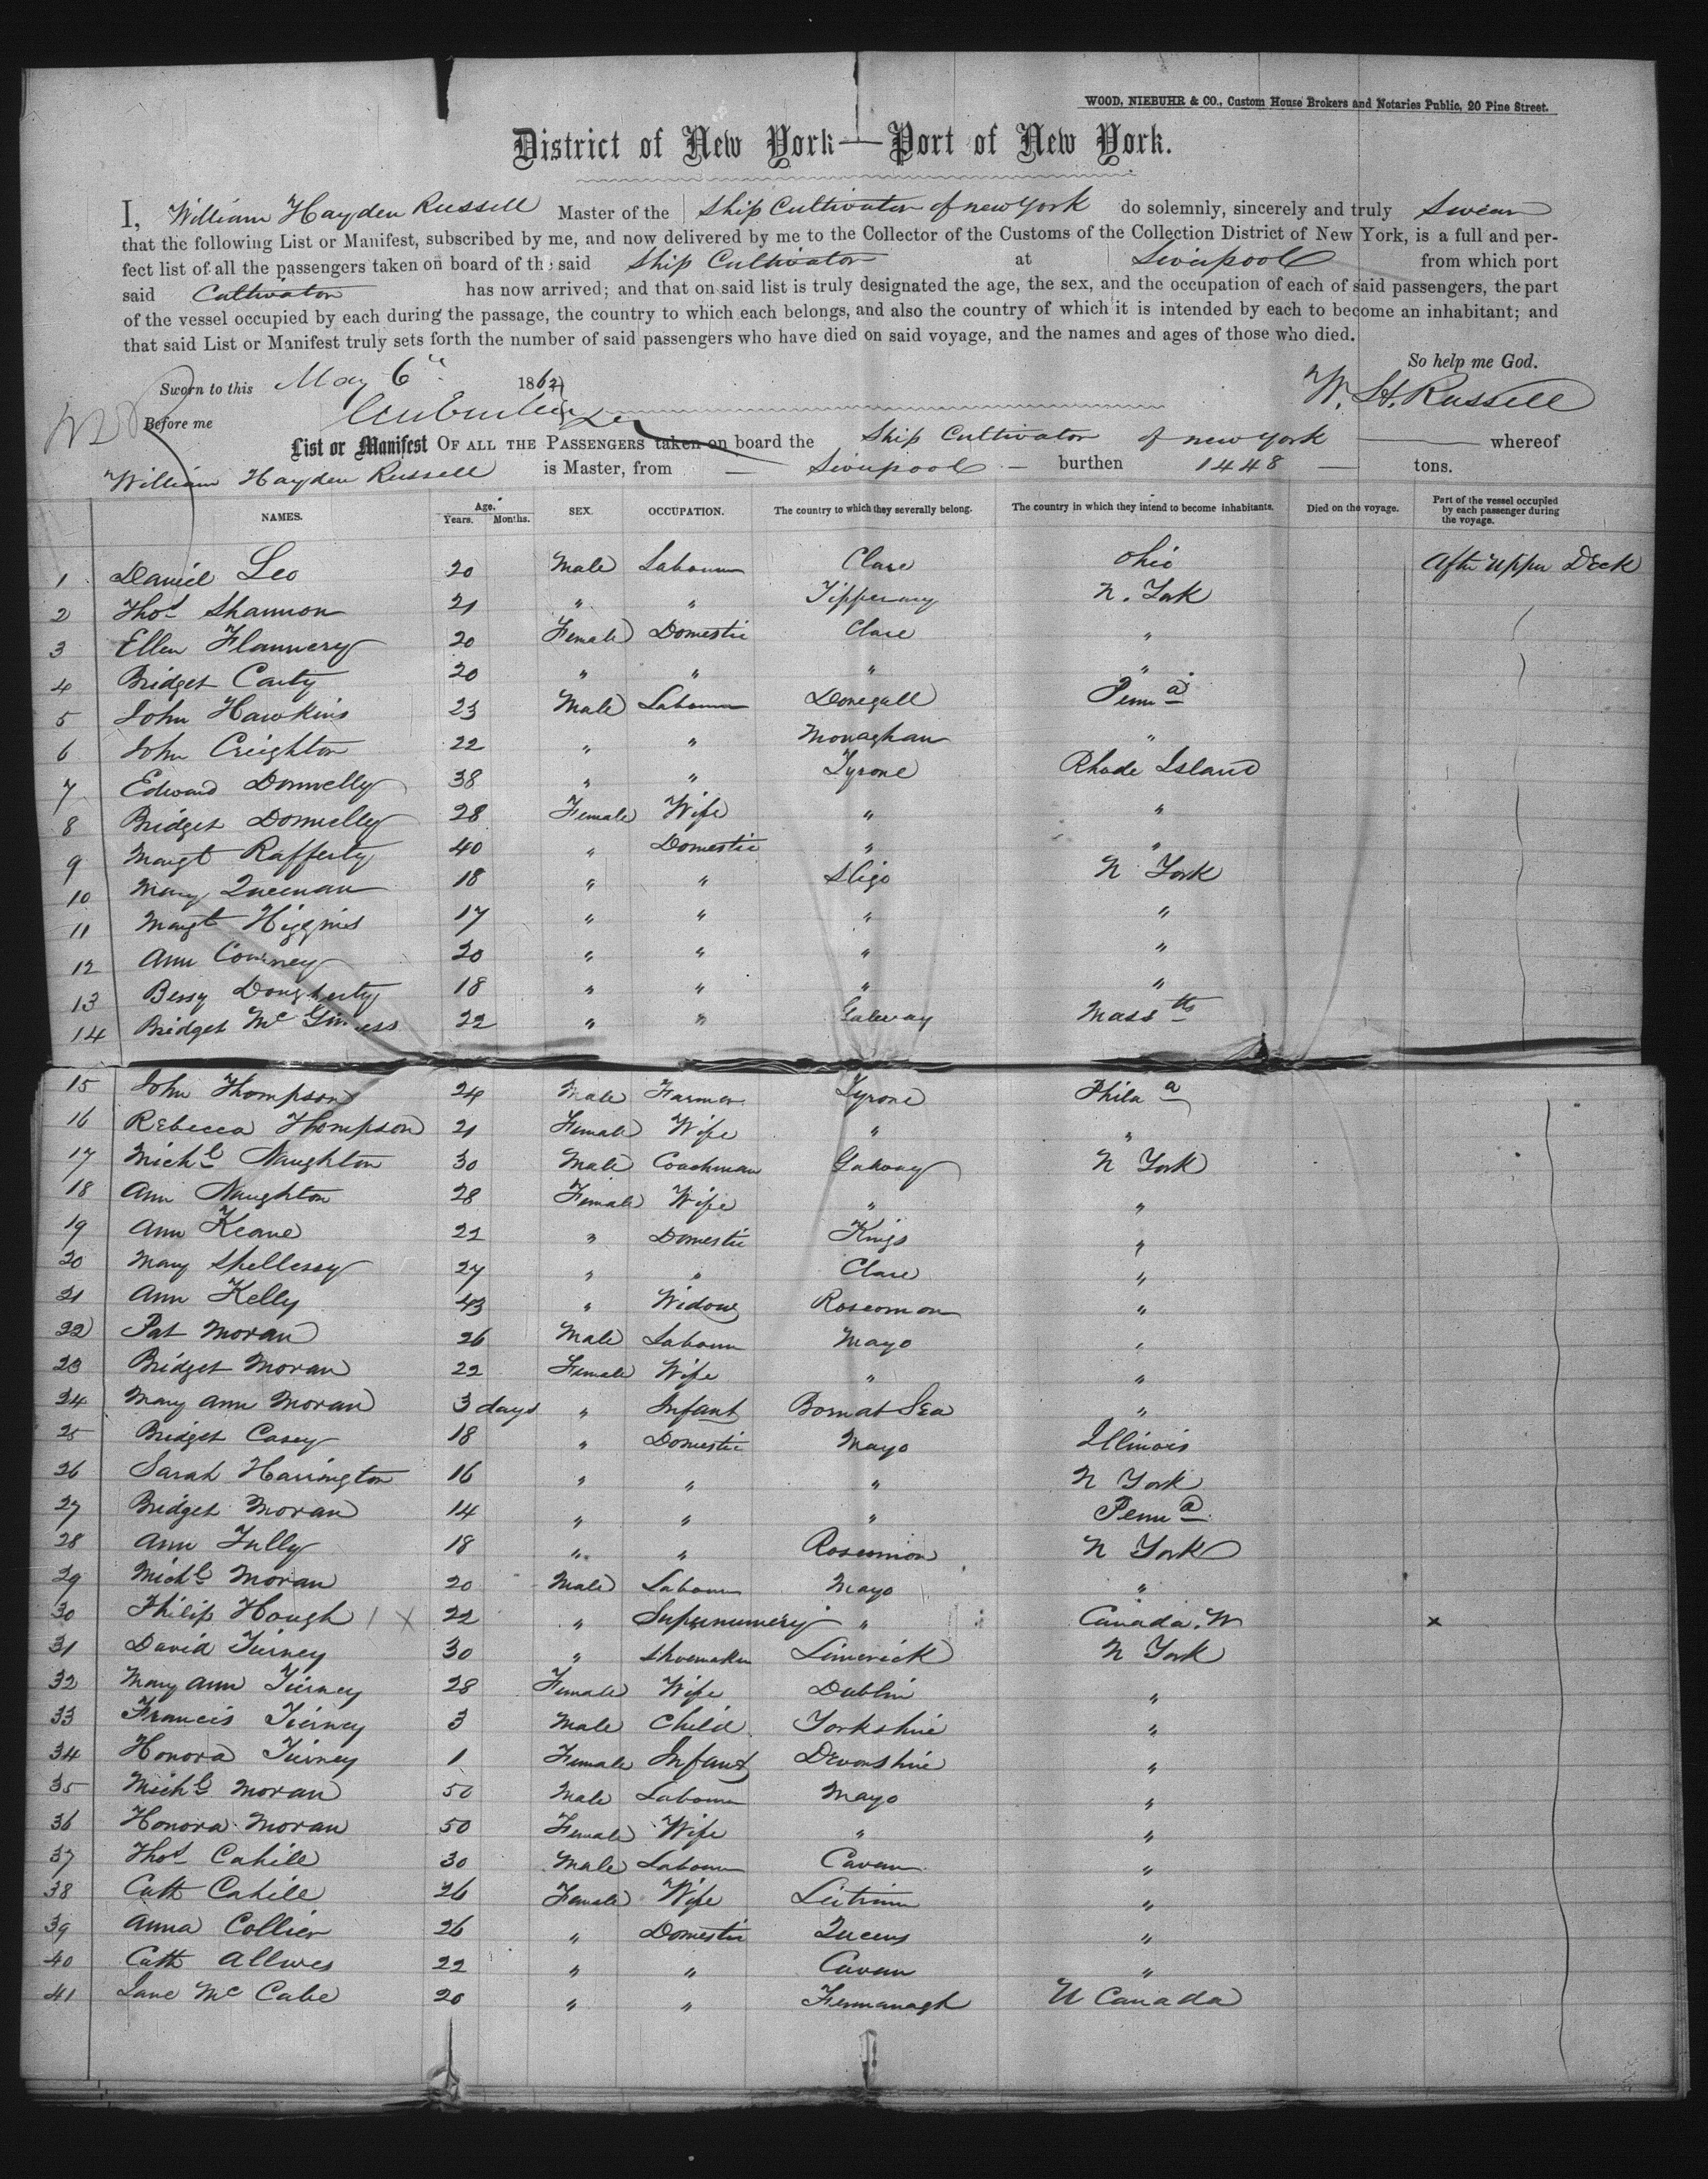 WOOD, NIEBUHR & CO., Custom House Brokers and Notaries Public, 20 Pine Street.
District of New York—Port of New York.
I, William Hayden Russell Master of the Ship Cultivator of New York do solemnly, sincerely and truly Swear
that the following List or Manifest, subscribed by me, and now delivered by me to the Collector of the Customs of the Collection District of New York, is a full and per-
fect list of all the passengers taken on board of the said Ship Cultivator at Liverpool from which port
said Cultivator has now arrived; and that on said list is truly designated the age, the sex, and the occupation of each of said passengers, the part
of the vessel occupied by each during the passage, the country to which each belongs, and also the country of which it is intended by each to become an inhabitant; and
that said List or Manifest truly sets forth the number of said passengers who have died on said voyage, and the names and ages of those who died.
So help me God.
Sworn to this May 6" 1862
W. H. Russell
Before me
List or Manifest OF ALL THE PASSENGERS taken on board the Ship Cultivator of New York whereof
William Hayden Russell is Master, from Liverpool burthen 1448 tons.
NAMES. Age. Years. Months. SEX. OCCUPATION. The country to which they severally belong. The country in which they intend to become inhabitants. Died on the voyage. Part of the vessel occupied by each passenger during the voyage.
1 Daniel Leo 20 Male Labourer Clare Ohio After Upper Deck
2 Thos Shannon 21 " " Tipperary N. York
3 Ellen Flannery 20 Female Domestic Clare "
4 Bridget Carty 20 " " " "
5 John Hawkins 23 Male Labourer Donegall Penna
6 John Creighton 22 " " Monaghan "
7 Edward Donnelly 38 " " Tyrone Rhode Island
8 Bridget Donnelly 28 Female Wife " "
9 Margt Rafferty 40 " Domestic " "
10 Mary Queenan 18 " " Sligo N York
11 Margt Higgins 17 " " " "
12 Ann Courney 20 " " " "
13 Bessy Dougherty 18 " " " "
14 Bridget Mc Giness 22 " " Galway Massts
15 John Thompson 24 Male Farmer Tyrone Phila
16 Rebecca Thompson 21 Female Wife " "
17 Michl Naughton 30 Male Coachman Galway N York
18 Ann Naughton 28 Female Wife " "
19 Ann Keane 22 " Domestic Kings "
20 Mary Spellessy 27 " " Clare "
21 Ann Kelly 43 " Widow Roscomon "
22 Pat Moran 26 Male Labourer Mayo "
23 Bridget Moran 22 Female Wife " "
24 Mary Ann Moran 3 days " Infant Born at Sea "
25 Bridget Casey 18 " Domestic Mayo Illinois
26 Sarah Harrington 16 " " " N York
27 Bridget Moran 14 " " " Penna
28 Ann Tully 18 " " Roscomon N York
29 Michl Moran 20 Male Labourer Mayo "
30 Philip Hough / X 22 " Supernumery " Canada. W x
31 David Tierney 30 " Shoemaker Limerick N York
32 Mary Ann Tierney 28 Female Wife Dublin "
33 Francis Tierney 3 Male Child Yorkshire "
34 Honora Tierney 1 Female Infant Devonshire "
35 Michl Moran 50 Male Labourer Mayo "
36 Honora Moran 50 Female Wife " "
37 Thos Cahill 30 Male Labourer Cavan "
38 Cath Cahill 26 Female Wife Leitrim "
39 Anna Collier 26 " Domestic Queens "
40 Cath Allwes 22 " " Cavan "
41 Jane Mc Cabe 20 " " Fermanagh U Canada